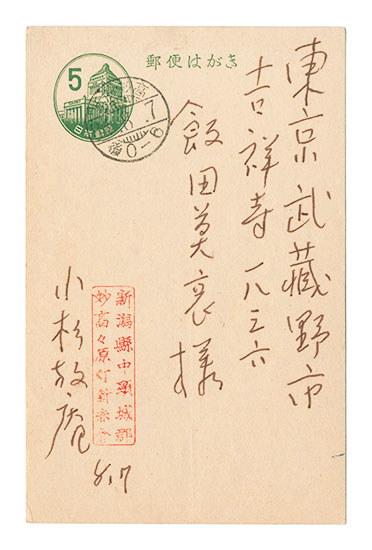 郵便はがき
5
日本郵便
東京武蔵野市
吉祥寺一八三六
飯田莫哀様
新潟縣中頸城郡
妙高々原町新赤倉
小杉放庵
8.17